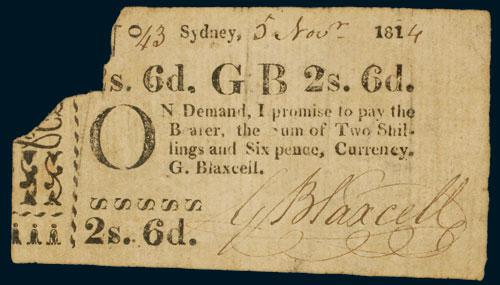 No 43 Sydney, 5 Novr. 1814
2s. 6d. G B 2s. 6d.
ON Demand, I promise to pay the
Bearer, the sum of Two Shil-
lings and Six pence, Currency.
G. Blaxcell.
2s. 6d.
G Blaxcell